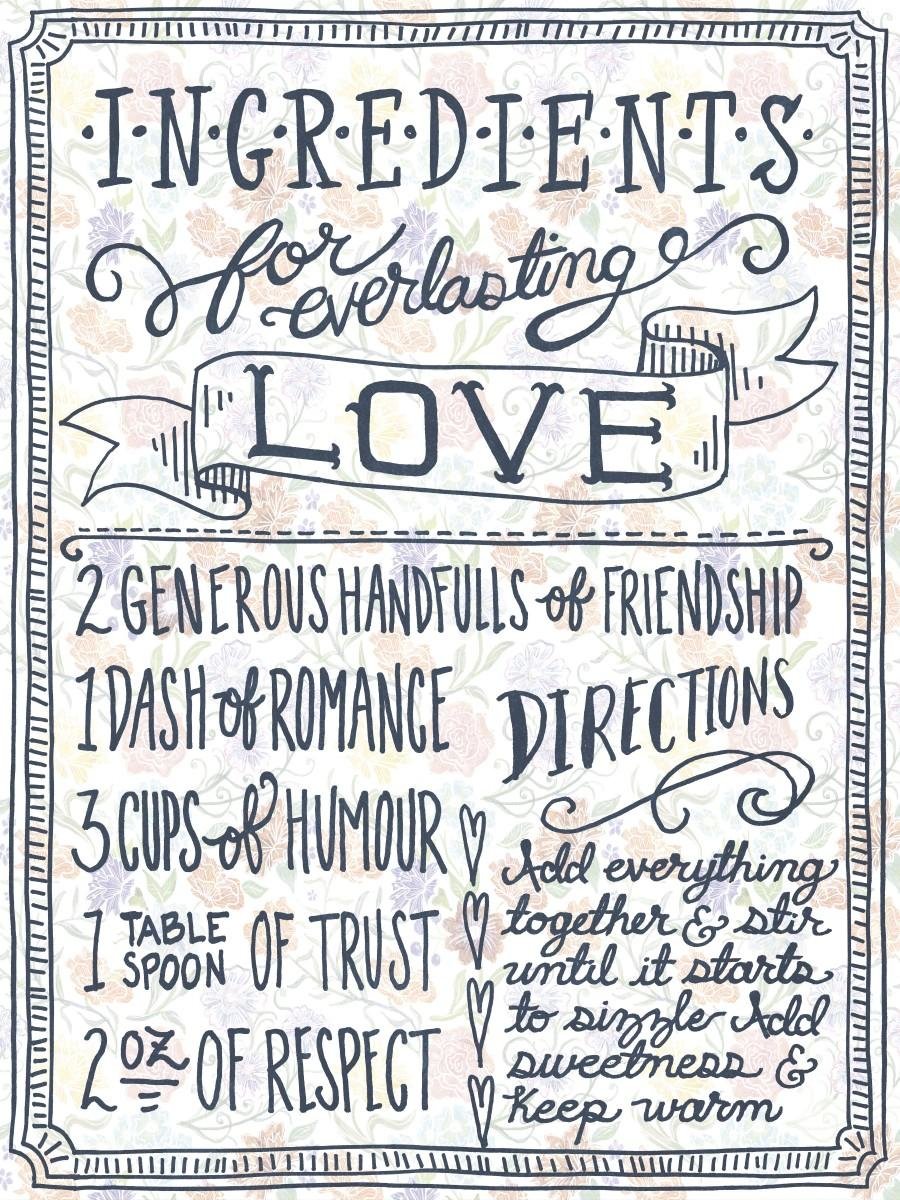 ·I·N·G·R·E·D·I·E·N·T·S·
for
everlasting
LOVE
2 GENEROUS HANDFULLS of FRIENDSHIP
1 DASH of ROMANCE
3 CUPS of HUMOUR
1 TABLE SPOON OF TRUST
2 OZ OF RESPECT
DIRECTIONS
Add everything
together & stir
until it starts
to sizzle Add
sweetness &
Keep warm